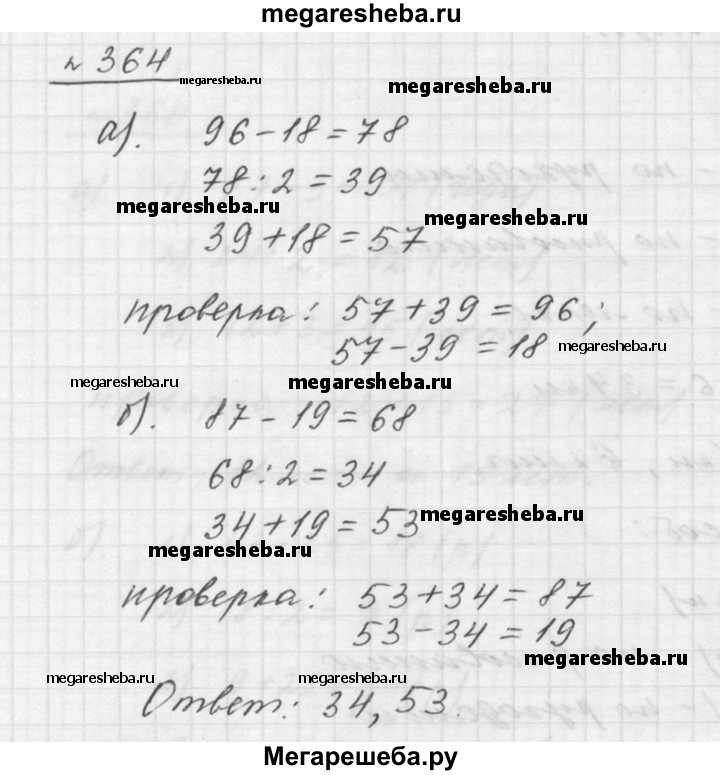 megaresheba.ru
№ 364
megaresheba.ru
megaresheba.ru
а). 96 - 18 = 78
78 : 2 = 39
megaresheba.ru
megaresheba.ru
39 + 18 = 57
проверка: 57 + 39 = 96;
57 - 39 = 18
megaresheba.ru
megaresheba.ru
megaresheba.ru
б). 87 - 19 = 68
68 : 2 = 34
34 + 19 = 53
megaresheba.ru
megaresheba.ru
проверка: 53 + 34 = 87
53 - 34 = 19
megaresheba.ru
megaresheba.ru
megaresheba.ru
Ответ: 34, 53.
Мегарешеба.ру